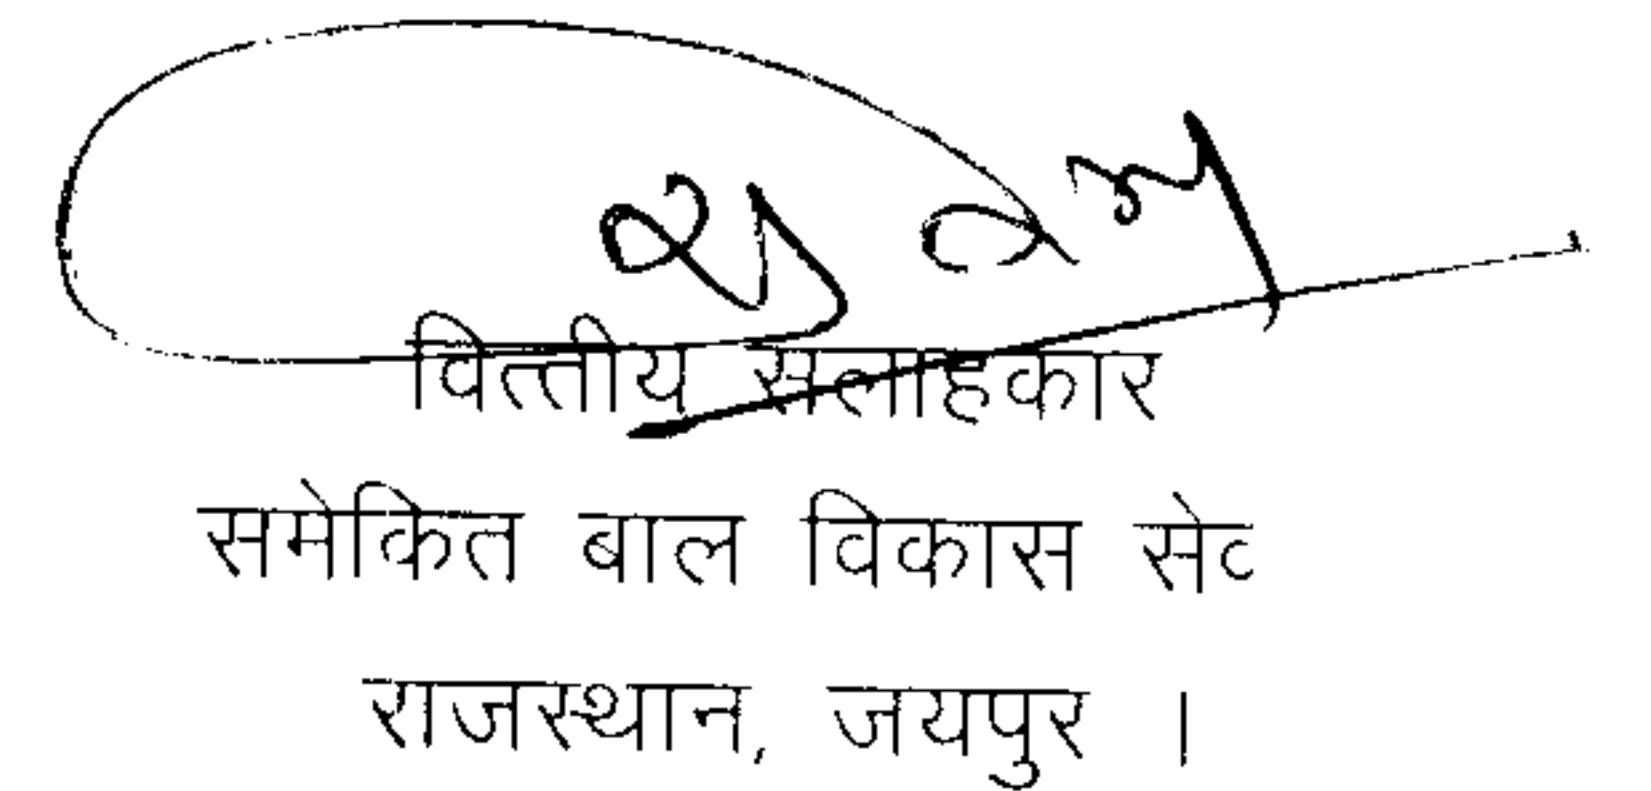 वित्तीय सलाहकार
समेकित बाल विकास
राजस्थान, जयपुर ।